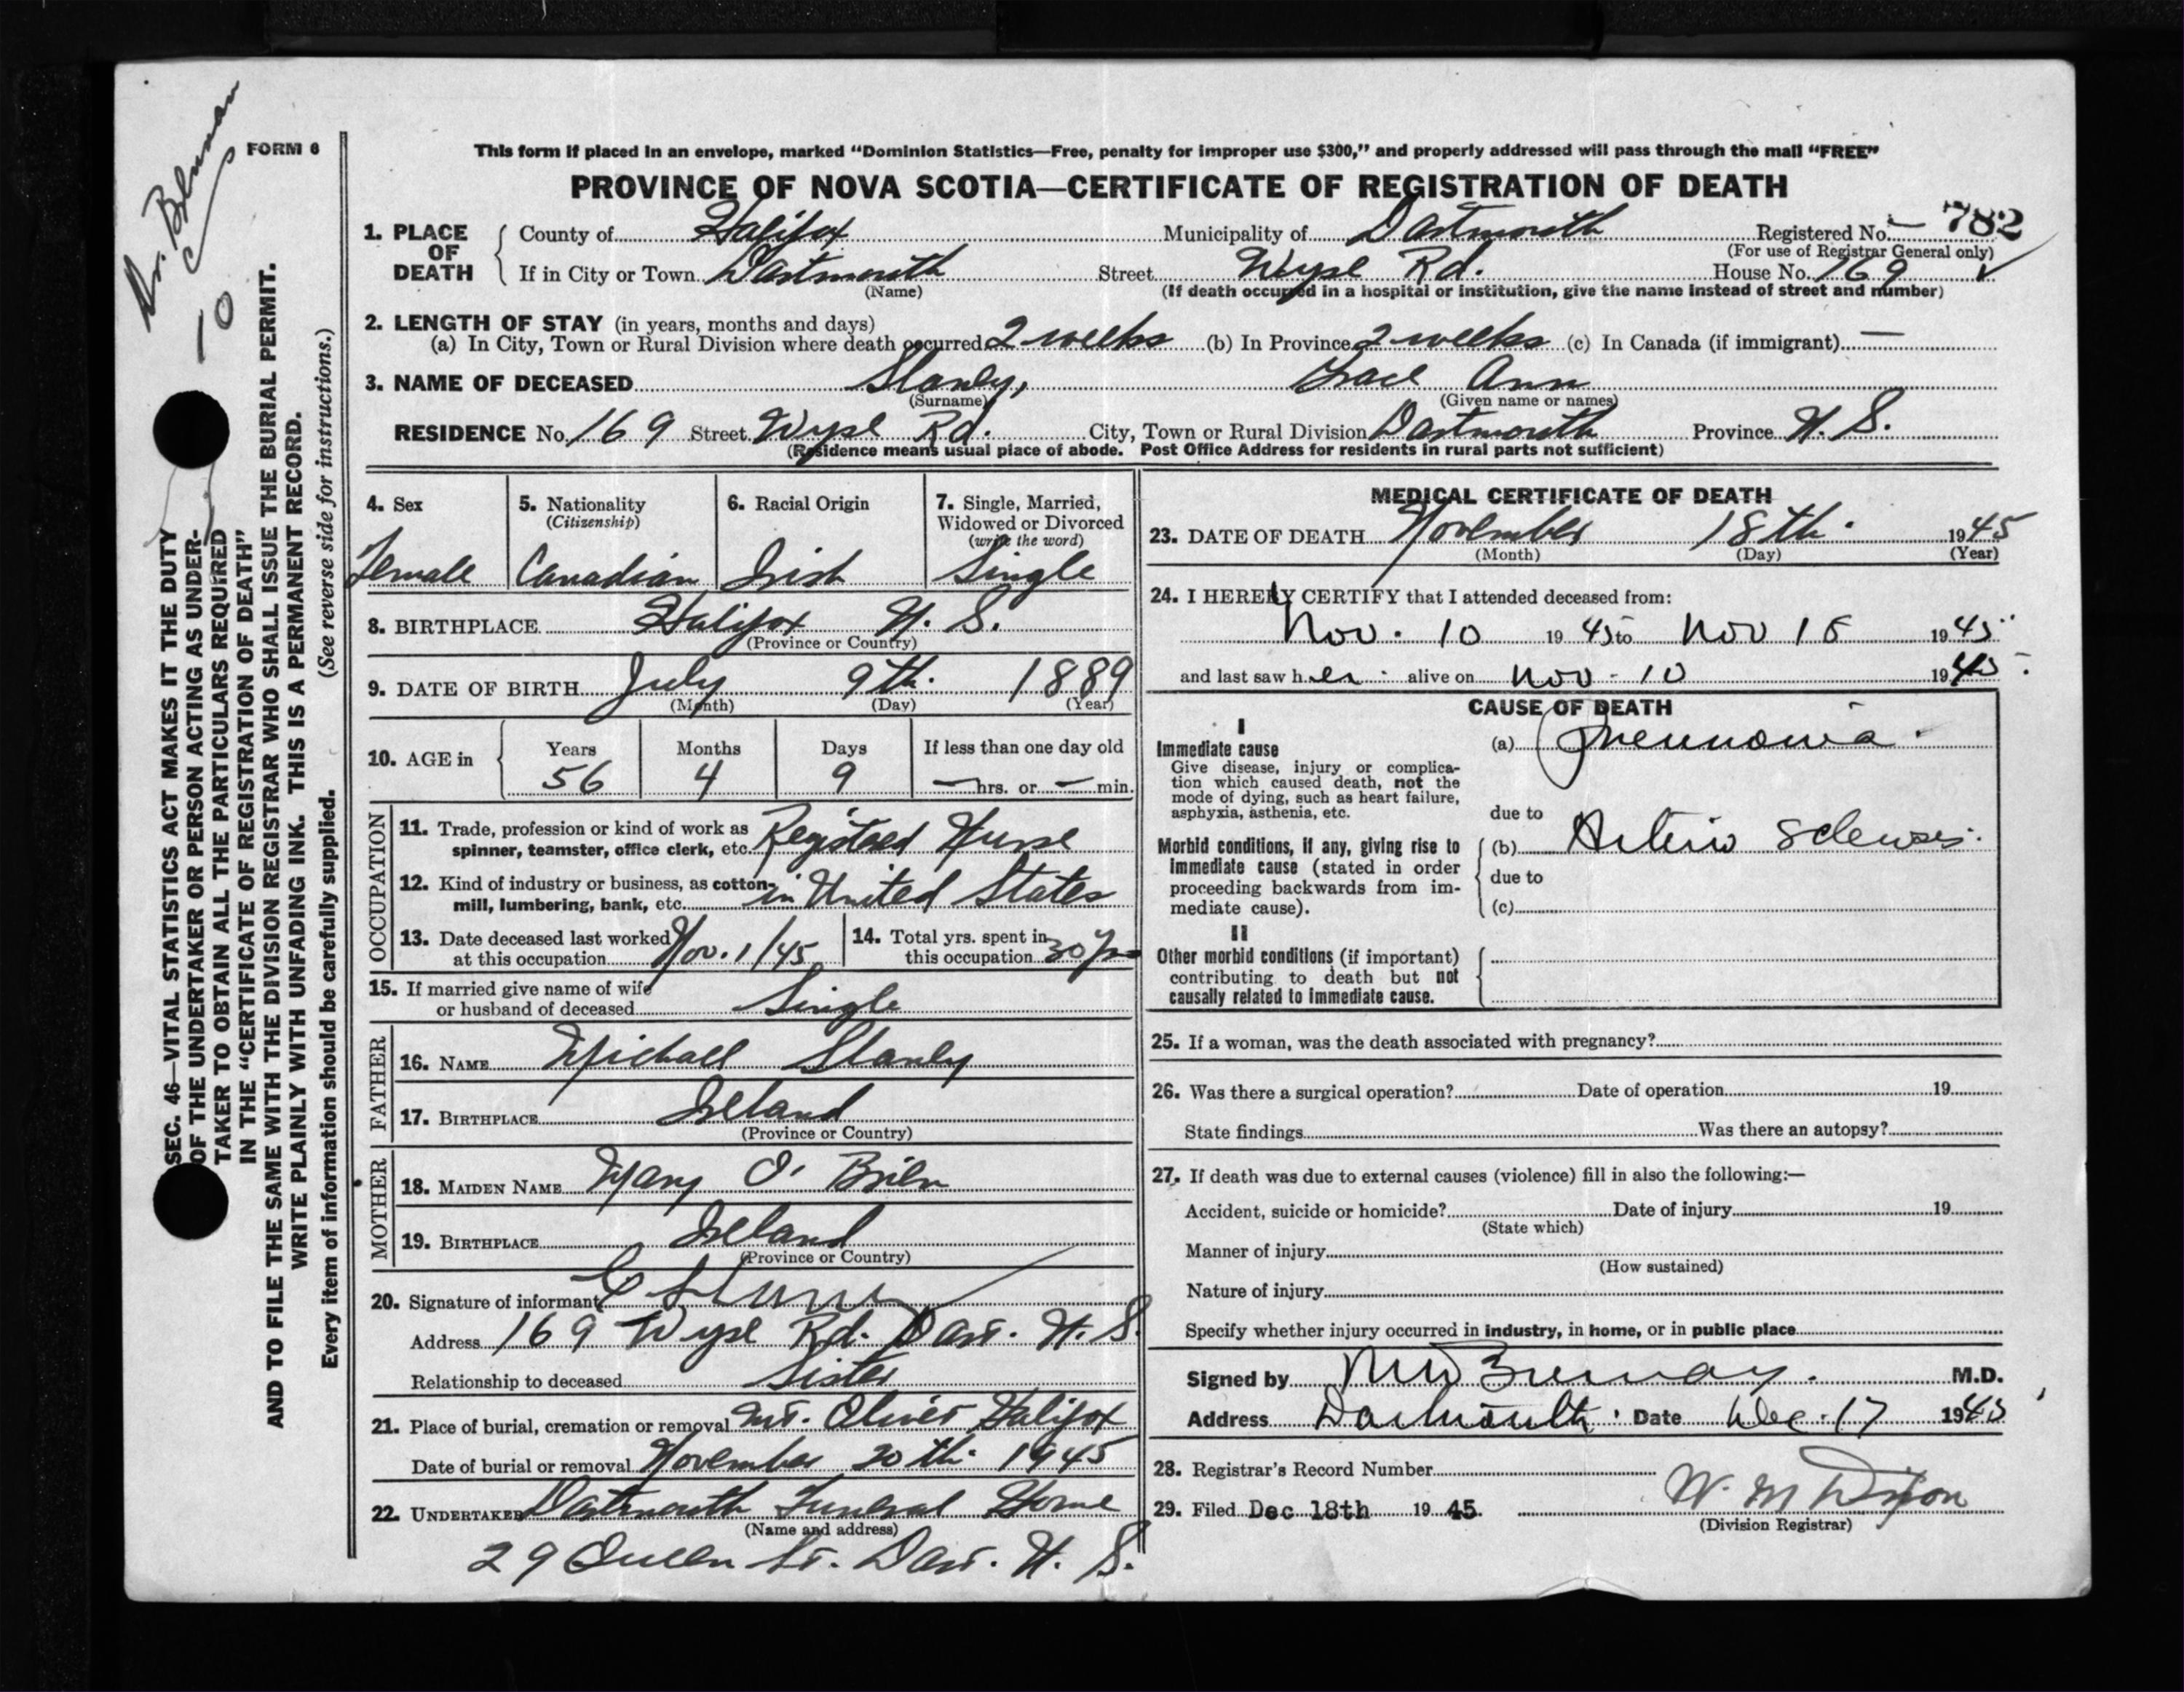 Dr. Brennan
10
FORM 6
SEC. 46—VITAL STATISTICS ACT MAKES IT THE DUTY
OF THE UNDERTAKER OR PERSON ACTING AS UNDER-
TAKER TO OBTAIN ALL THE PARTICULARS REQUIRED
IN THE "CERTIFICATE OF REGISTRATION OF DEATH"
AND TO FILE THE SAME WITH THE DIVISION REGISTRAR WHO SHALL ISSUE THE BURIAL PERMIT.
WRITE PLAINLY WITH UNFADING INK. THIS IS A PERMANENT RECORD.
Every item of information should be carefully supplied. (See reverse side for instructions.)
This form if placed in an envelope, marked "Dominion Statistics—Free, penalty for improper use $300," and properly addressed will pass through the mail "FREE"
PROVINCE OF NOVA SCOTIA—CERTIFICATE OF REGISTRATION OF DEATH
1. PLACE OF DEATH County of Halifax Municipality of Dartmouth Registered No. 782
(For use of Registrar General only)
If in City or Town Dartmouth Street Wyse Rd. House No. 169
(Name) (If death occurred in a hospital or institution, give the name instead of street and number)
2. LENGTH OF STAY (in years, months and days)
(a) In City, Town or Rural Division where death occurred 2 weeks (b) In Province 2 weeks (c) In Canada (if immigrant) —
3. NAME OF DECEASED Slanly, Grace Ann
(Surname) (Given name or names)
RESIDENCE No. 169 Street Wyse Rd. City, Town or Rural Division Dartmouth Province N. S.
(Residence means usual place of abode. Post Office Address for residents in rural parts not sufficient)
4. Sex 5. Nationality (Citizenship) 6. Racial Origin 7. Single, Married, Widowed or Divorced (write the word)
Female Canadian Irish Single
8. BIRTHPLACE Halifax N. S.
(Province or Country)
9. DATE OF BIRTH July 9th. 1889
(Month) (Day) (Year)
10. AGE in Years Months Days If less than one day old
56 4 9 — hrs. or — min.
OCCUPATION
11. Trade, profession or kind of work as
spinner, teamster, office clerk, etc. Registered Nurse
12. Kind of industry or business, as cotton-
mill, lumbering, bank, etc. in United States
13. Date deceased last worked
at this occupation Nov. 1/45
14. Total yrs. spent in
this occupation 30 yrs
15. If married give name of wife
or husband of deceased Single
FATHER
16. NAME Michael Slanly
17. BIRTHPLACE Ireland
(Province or Country)
MOTHER
18. MAIDEN NAME Mary O' Brien
19. BIRTHPLACE Ireland
(Province or Country)
20. Signature of informant
Address 169 Wyse Rd. Dart. N. S.
Relationship to deceased Sister
21. Place of burial, cremation or removal Mt. Olivet Halifax
Date of burial or removal November 20th. 1945
22. UNDERTAKER Dartmouth Funeral Home
(Name and address)
29 Queen St. Dart. N. S.
MEDICAL CERTIFICATE OF DEATH
23. DATE OF DEATH November 18th. 1945
(Month) (Day) (Year)
24. I HEREBY CERTIFY that I attended deceased from:
Nov. 10 1945 to Nov 18 1945
and last saw her alive on Nov. 10 1945
CAUSE OF DEATH
I
Immediate cause (a) Pneumonia
Give disease, injury or complica-
tion which caused death, not the
mode of dying, such as heart failure,
asphyxia, asthenia, etc. due to
Morbid conditions, if any, giving rise to (b) Arterio Sclerosis.
immediate cause (stated in order
proceeding backwards from im- due to
mediate cause). (c)
II
Other morbid conditions (if important)
contributing to death but not
causally related to immediate cause.
25. If a woman, was the death associated with pregnancy?
26. Was there a surgical operation? Date of operation 19
State findings Was there an autopsy?
27. If death was due to external causes (violence) fill in also the following:—
Accident, suicide or homicide? Date of injury 19
(State which)
Manner of injury
(How sustained)
Nature of injury
Specify whether injury occurred in industry, in home, or in public place
Signed by M.D.
Address Dartmouth. Date Dec. 17 1945
28. Registrar's Record Number
29. Filed Dec 18th 19 45. W. M Dixon
(Division Registrar)